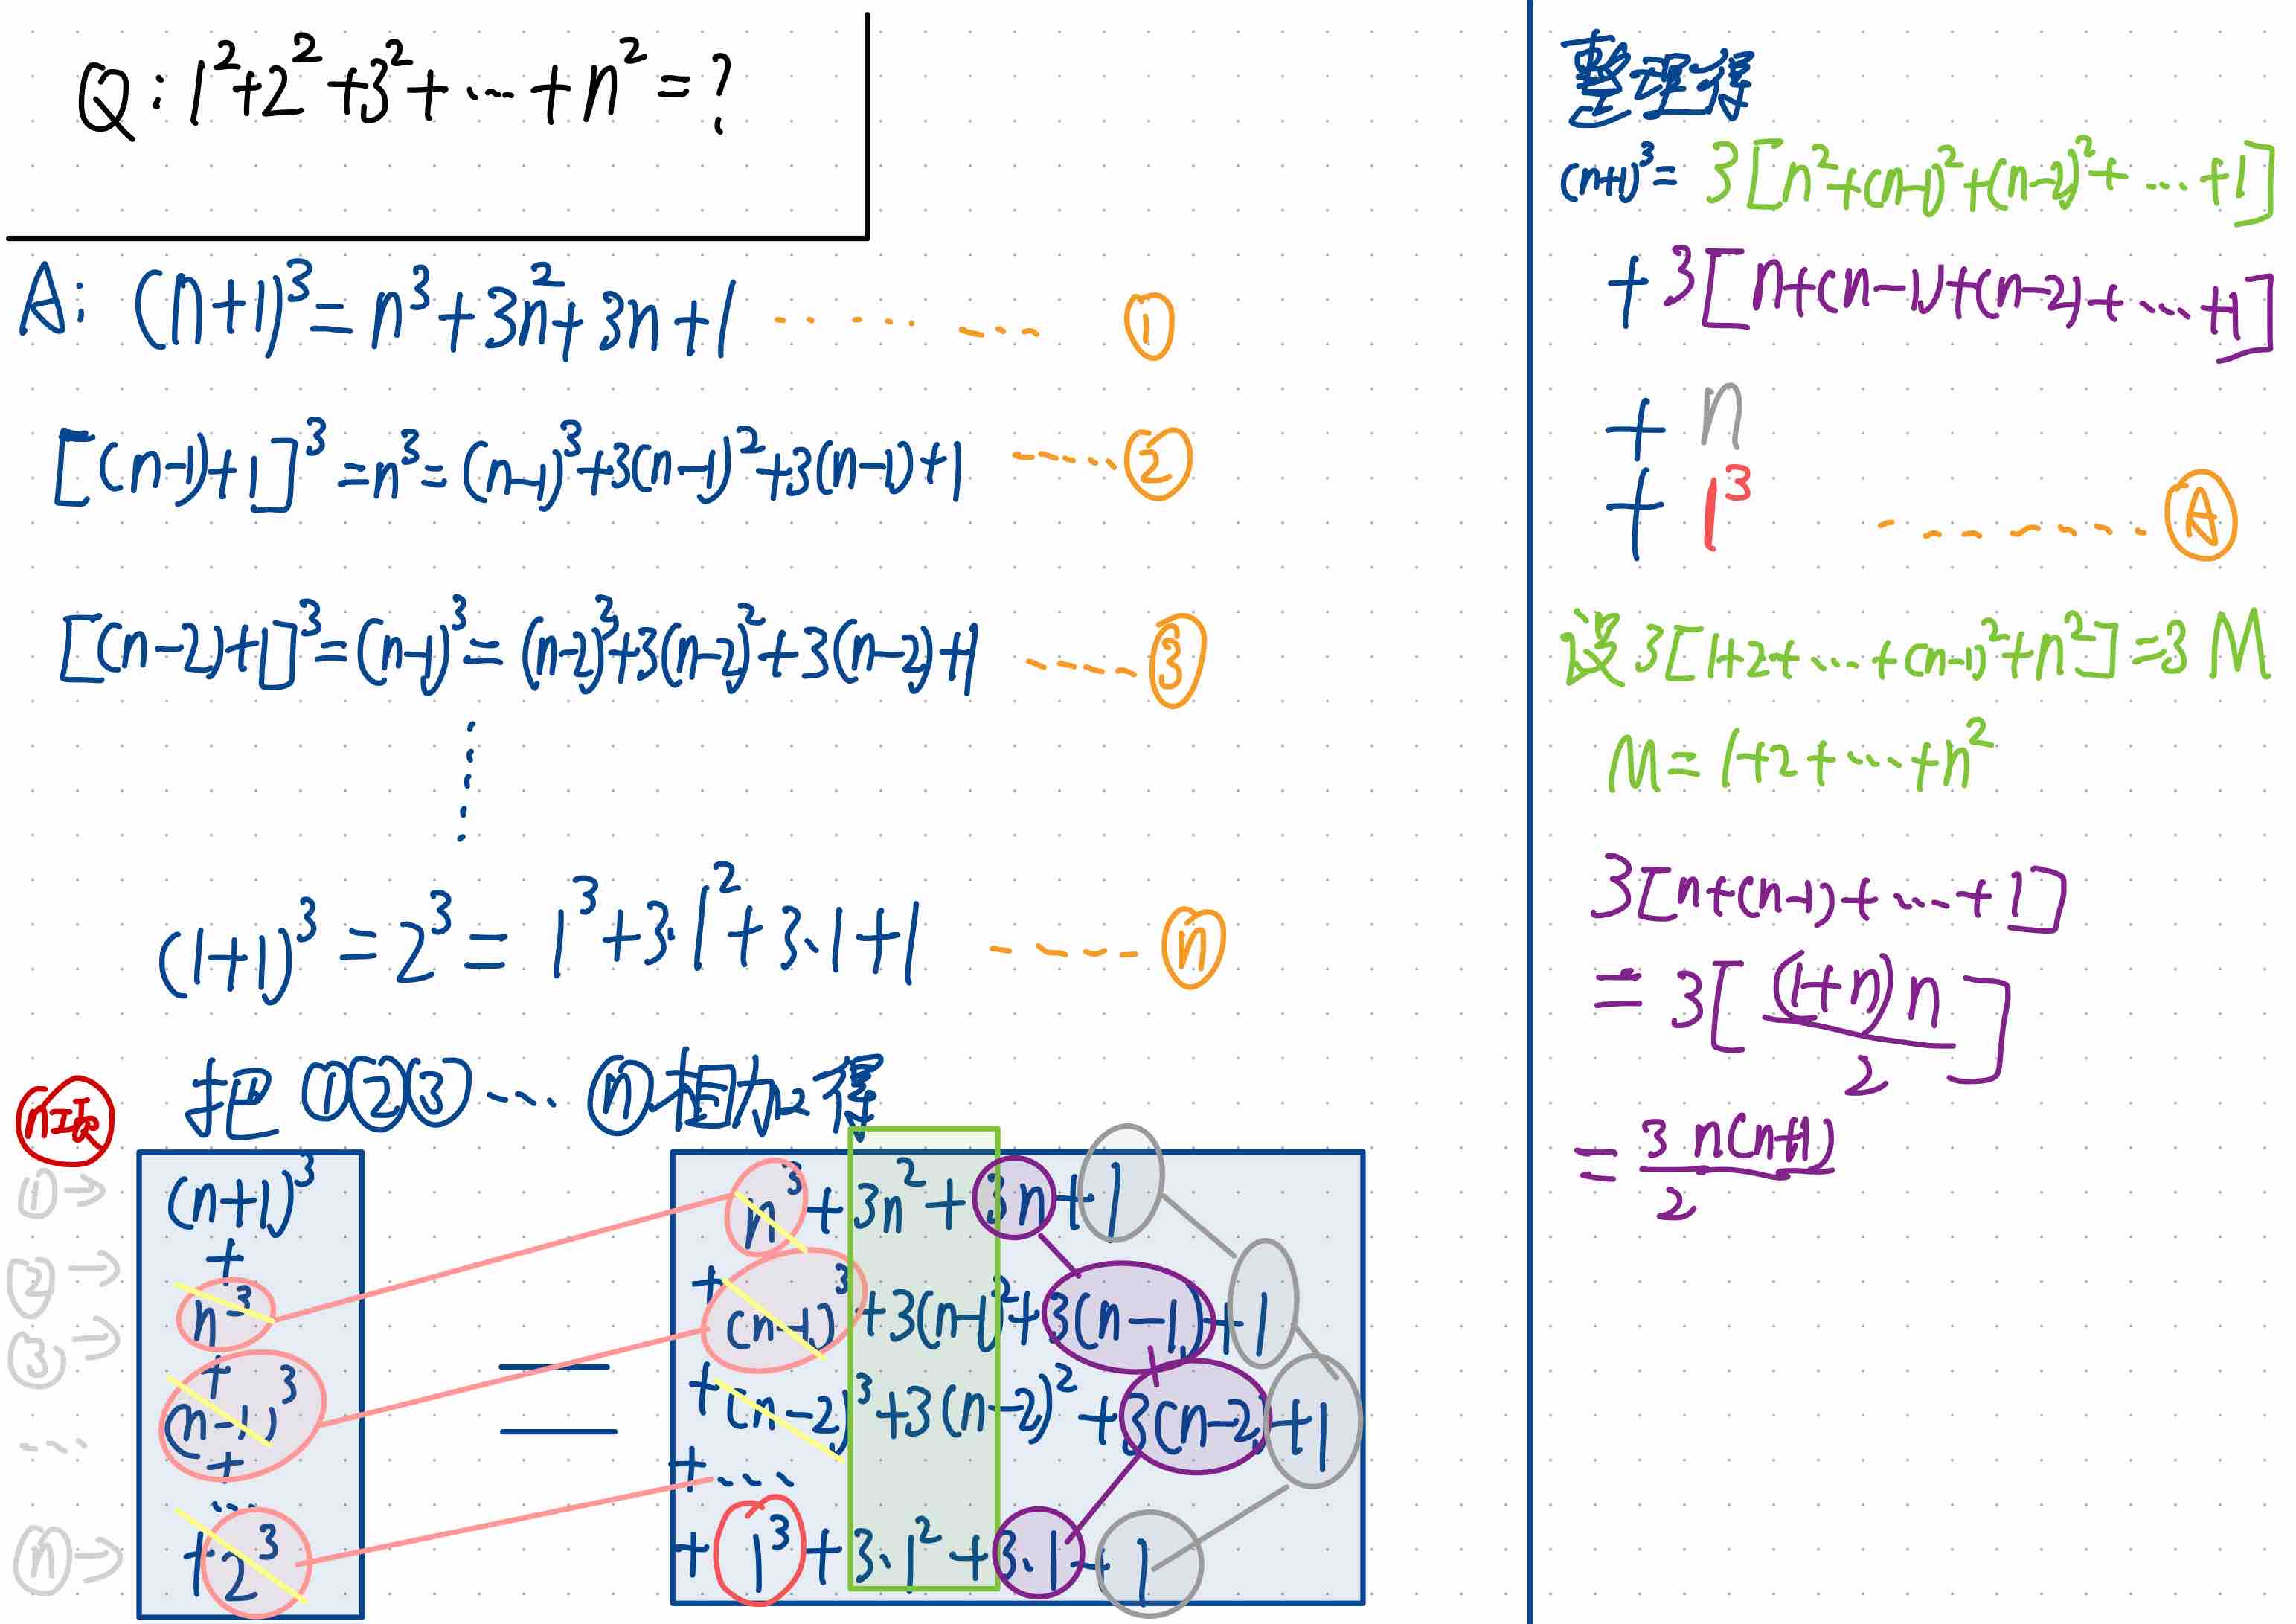 Q: 1²+2²+3²+…+n²=?
A: (n+1)³=n³+3n²+3n+1 …… ①
[(n-1)+1]³=n³=(n-1)³+3(n-1)²+3(n-1)+1 …… ②
[(n-2)+1]³=(n-1)³=(n-2)³+3(n-2)²+3(n-2)+1 …… ③
⋮
(1+1)³=2³=1³+3·1²+3·1+1 …… ⓝ
把①②③…ⓝ相加得
n项
①→ (n+1)³ n³+3n²+3n+1
②→ +n³ +(n-1)³+3(n-1)²+3(n-1)+1
③→ +(n-1)³ = +(n-2)³+3(n-2)²+3(n-2)+1
… +… +…
ⓝ→ +2³ +1³+3·1²+3·1+1
整理得
(n+1)³=3[n²+(n-1)²+(n-2)²+…+1]
+3[n+(n-1)+(n-2)+…+1]
+n
+1³ …… Ⓐ
设3[1+2+…+(n-1)²+n²]=3M
M=1+2+…+n²
3[n+(n-1)+…+1]
=3[(1+n)n/2]
=3n(n+1)/2